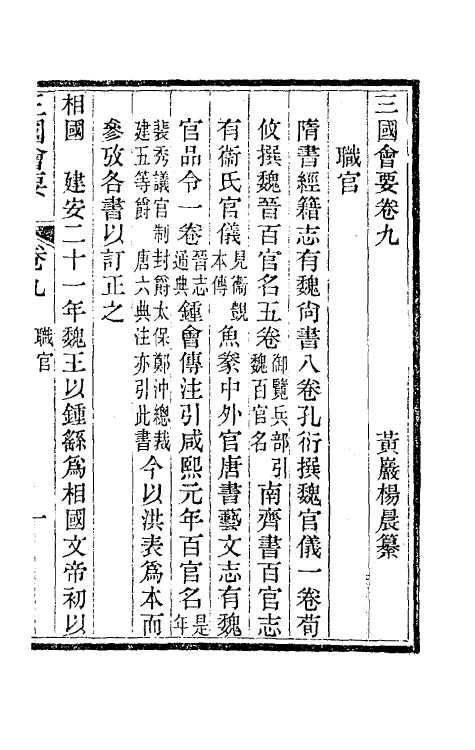 三國會要卷九
黃巖楊晨纂
職官
隋書經籍志有魏尙書八卷孔衍撰魏官儀一卷荀
攸撰魏晉百官名五卷御覽兵部引魏百官名南齊書百官志
有衞氏官儀見衞覬本傳魚豢中外官唐書藝文志有魏
官品令一卷晉志通典鍾會傳注引咸熙元年百官名是年
裴秀議官制封爵太保鄭沖總裁建五等爵唐六典注亦引此書今以洪表爲本而
參攷各書以訂正之
相國　建安二十一年魏王以鍾繇爲相國文帝初以
三國會要
卷九
職官
一